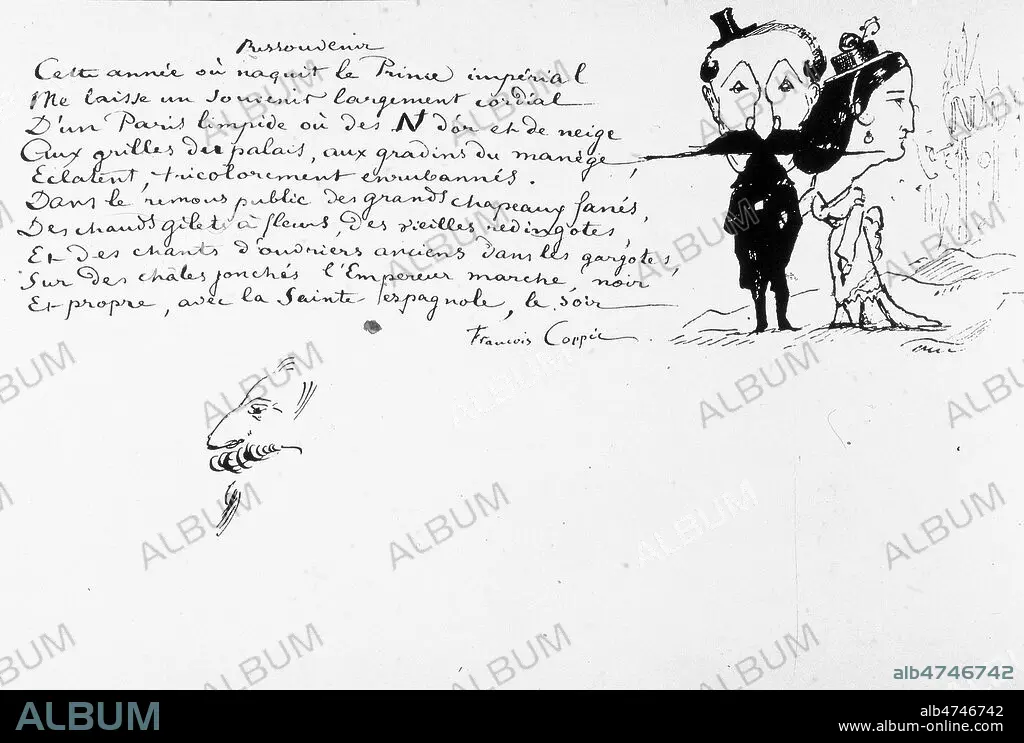 Ressouvenir
Cette année où naquit le Prince impérial
Me laisse un souvenir largement cordial
D'un Paris limpide où des N d'or et de neige
Aux grilles du palais, aux gradins du manège,
Eclatent, tricolorement enrubannés.
Dans le remous public des grands chapeaux fanés,
Des chauds gilets à fleurs, des vieilles redingotes,
Et des chants d'ouvriers anciens dans les gargotes,
Sur des châles jonchés l'Empereur marche, noir
Et propre, avec la Sainte espagnole, le soir
François Coppée.
ALBUM
alb4746742
alb4746742
www.album-online.com